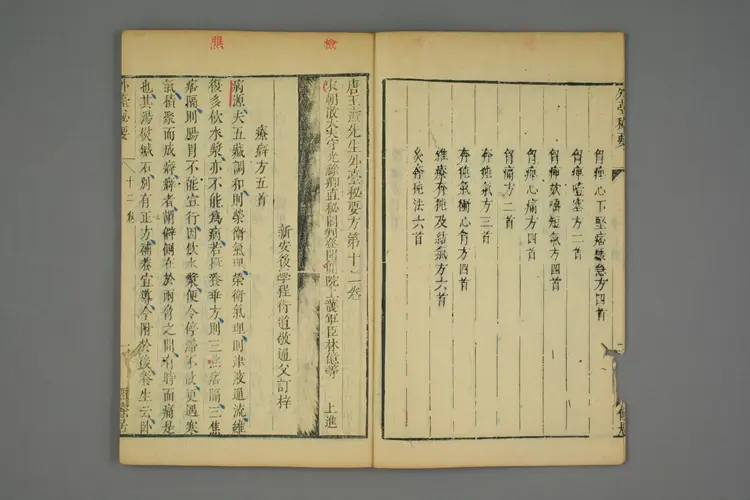 胷痺心下堅痞緩急方四首
胷痺噎塞方二首
胷痺欬唾短氣方四首
胷痺心痛方四首
胷痛方二首
奔㹠氣方三首
奔㹠氣衝心胷方四首
雜療奔㹠及結氣方六首
灸奔㹠法六首
外臺秘要
唐王燾先生外臺秘要方第十二卷
宋朝散大夫守光祿卿直秘閣判登聞檢院上護軍臣林億等 上進
新安後學程衍道敬通父訂梓
療癖方五首
病源夫五臟調和則榮衛氣理榮衛氣理則津液通流雖
復多飲水漿亦不能為病若攝養乖方則三焦痞隔三焦
痞隔則腸胃不能宣行因飲水漿便令停滯不散更遇寒
氣積聚而成癖癖者謂僻側在於兩脅之間有時而痛是
也其湯熨鍼石別有正方補養宣導今附於後養生云卧
外臺秘要
十二卷
檢